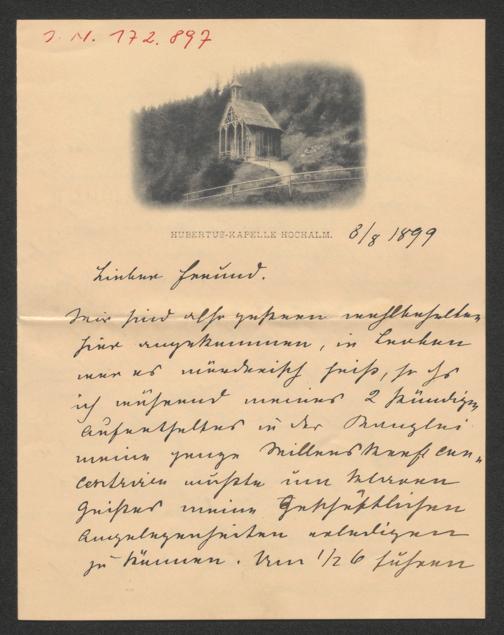 I. N. 172.897
HUBERTUS-KAPELLE HOCHALM.
8/8 1899
Lieber Freund.
Wir sind also gestern wohlbehalten
hier angekommen, in Leoben
war es mörderisch heiß, so daß
ich während meines 2 stündigen
Aufenthaltes in der Kanzlei
meine ganze Willenskraft con-
centriren mußte um klaren
Geistes meine geschäftlichen
Angelegenheiten erledigen
zu können. Um 1/2 6 fuhren